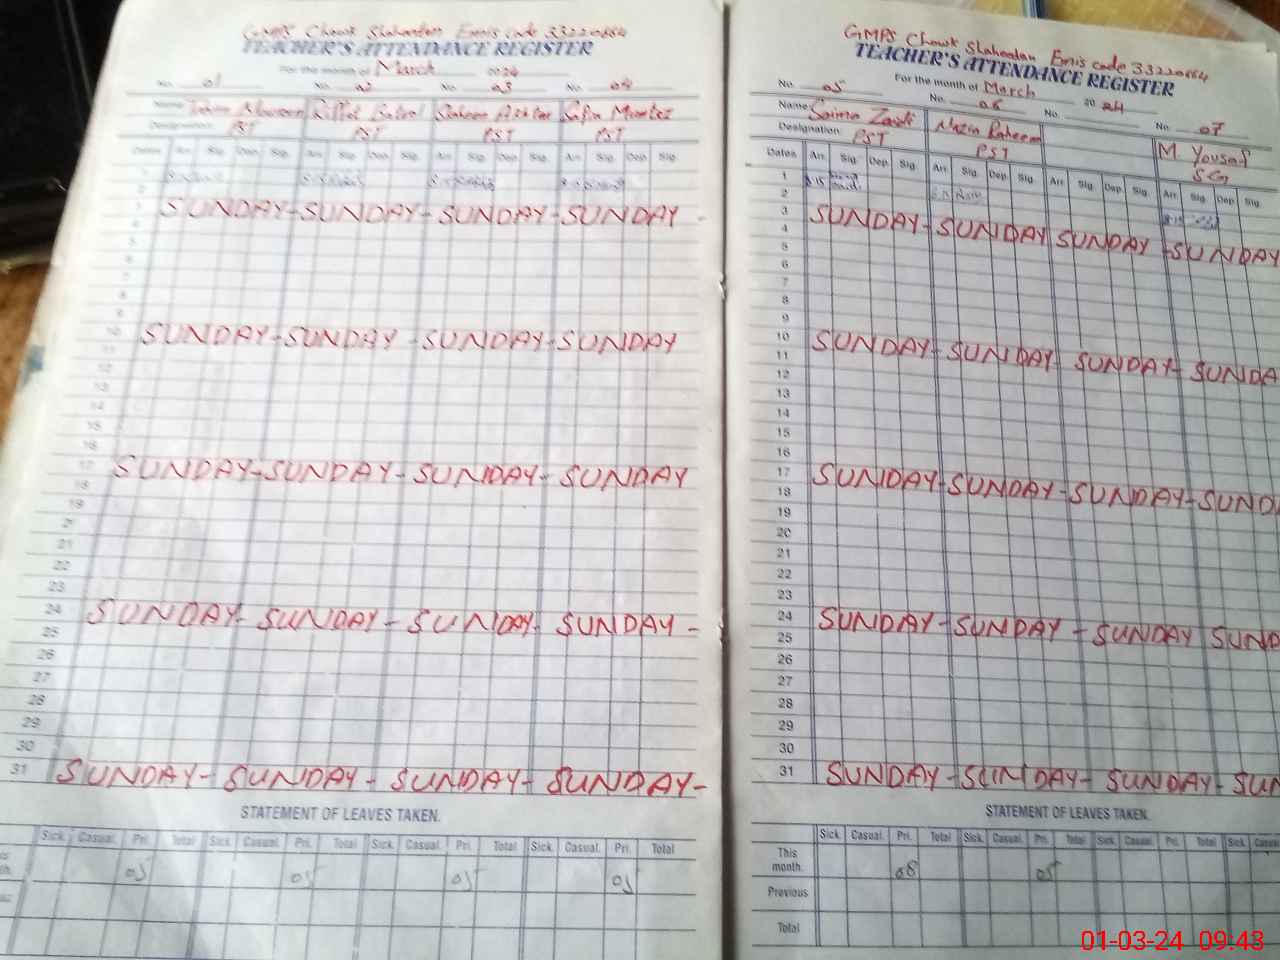 GMPS Chowk Shaheedan Emis code 33220664
TEACHER'S ATTENDANCE REGISTER
For the month of March 2024
No. 01 No. 02 No. 03 No. 04
Name
Designation PST PST PST PST
Dates Arr. Sig. Dep. Sig. Arr. Sig. Dep. Sig. Arr. Sig. Dep. Sig. Arr. Sig. Dep. Sig.
2
3 SUNDAY - SUNDAY - SUNDAY - SUNDAY -
4
5
6
7
8
9
10 SUNDAY - SUNDAY - SUNDAY - SUNDAY
11
12
13
14
15
16
17 SUNDAY - SUNDAY - SUNDAY - SUNDAY
18
19
20
21
22
23
24 SUNDAY - SUNDAY - SUNDAY - SUNDAY -
25
26
27
28
29
30
31 SUNDAY - SUNDAY - SUNDAY - SUNDAY -
STATEMENT OF LEAVES TAKEN.
Sick. Casual. Pri. Total Sick. Casual. Pri. Total Sick. Casual. Pri. Total Sick. Casual. Pri. Total
05 05 05 05
GMPS Chowk Shaheedan Emis code 33220664
TEACHER'S ATTENDANCE REGISTER
For the month of March 2024
No. 05 No. 06 No. No. 07
Name Saima Zaidi Nazia Raheem M. Yousaf
Designation PST PST SG
Dates Arr. Sig. Dep. Sig. Arr. Sig. Dep. Sig. Arr. Sig. Dep. Sig. Arr. Sig. Dep. Sig.
1 8:15
2
3 SUNDAY - SUNDAY SUNDAY - SUNDAY
4
5
6
7
8
9
10 SUNDAY - SUNDAY - SUNDAY - SUNDA
11
12
13
14
15
16
17 SUNDAY - SUNDAY - SUNDAY - SUND
18
19
20
21
22
23
24 SUNDAY - SUNDAY - SUNDAY SUND
25
26
27
28
29
30
31 SUNDAY - SUNDAY - SUNDAY - SUN
STATEMENT OF LEAVES TAKEN.
Sick. Casual. Pri. Total Sick. Casual. Pri. Total Sick. Casual. Pri. Total Sick.
This month. 08 05
Previous
Total
01-03-24 09:43